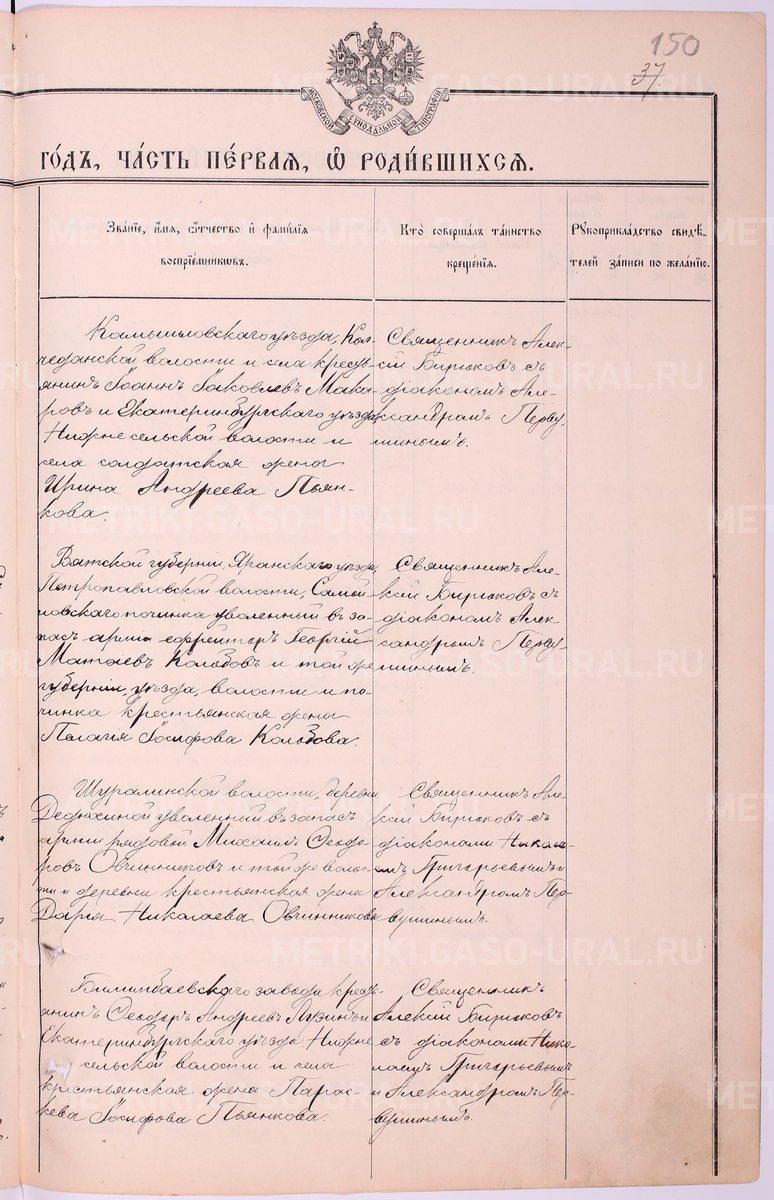 150
37
МОСКОВСКОЙ СѴНОДАЛЬНОЙ ТИПОГРАФІИ
ГОДЪ, ЧАСТЬ ПЕРВАЯ, Ѡ РОДИВШИХСЯ.
Званіе, имя, отчество и фамилія
воспріемниковъ.
Кто совершалъ таинство
крещенія.
Рукоприкладство свидѣ-
телей записи по желанію.
Камышловскаго уѣзда, Кол-
чеданской волости и села кресть-
янинъ Іоаннъ Іаковлевъ Мака-
ровъ и Екатеринбургскаго уѣзда
Нижнесельской волости и
села солдатская жена
Ирина Андреева Пьян-
кова.
Священникъ Алек-
сій Бирюковъ съ
діакономъ Але-
ксандромъ Перву-
шинымъ.
Вятской губерніи, Яранскаго уѣзда,
Петропавловской волости,
починка уволенный въ за-
пасъ арміи ефрейторъ Георгій
и той же
губерніи, уѣзда, волости и по-
чинка крестьянская жена
Пелагія Іосифова
Священникъ Але-
ксій Бирюковъ съ
діакономъ Алек-
сандромъ Перву-
шинымъ.
Шуралинской волости, деревни
уволенный въ запасъ
арміи рядовой Михаилъ Ѳеодо-
ровъ Овчинниковъ и той же волос-
ти и деревни крестьянская жена
Дарія Николаева Овчинникова
Священникъ Але-
ксій Бирюковъ съ
діаконами Никола-
емъ Григорьевымъ и
Александромъ Пер-
вушинымъ.
Билимбаевскаго завода кресть-
янинъ Ѳеодоръ Андреевъ и
Екатеринбургскаго уѣзда Нижне
сельской волости и села
крестьянская жена Парас-
кева Іосифова Пьянкова.
Священникъ
Алексій Бирюковъ
съ діаконами Нико-
лаемъ Григорьевымъ
и Александромъ Пер-
вушинымъ.
METRIKI.GASO-URAL.RU